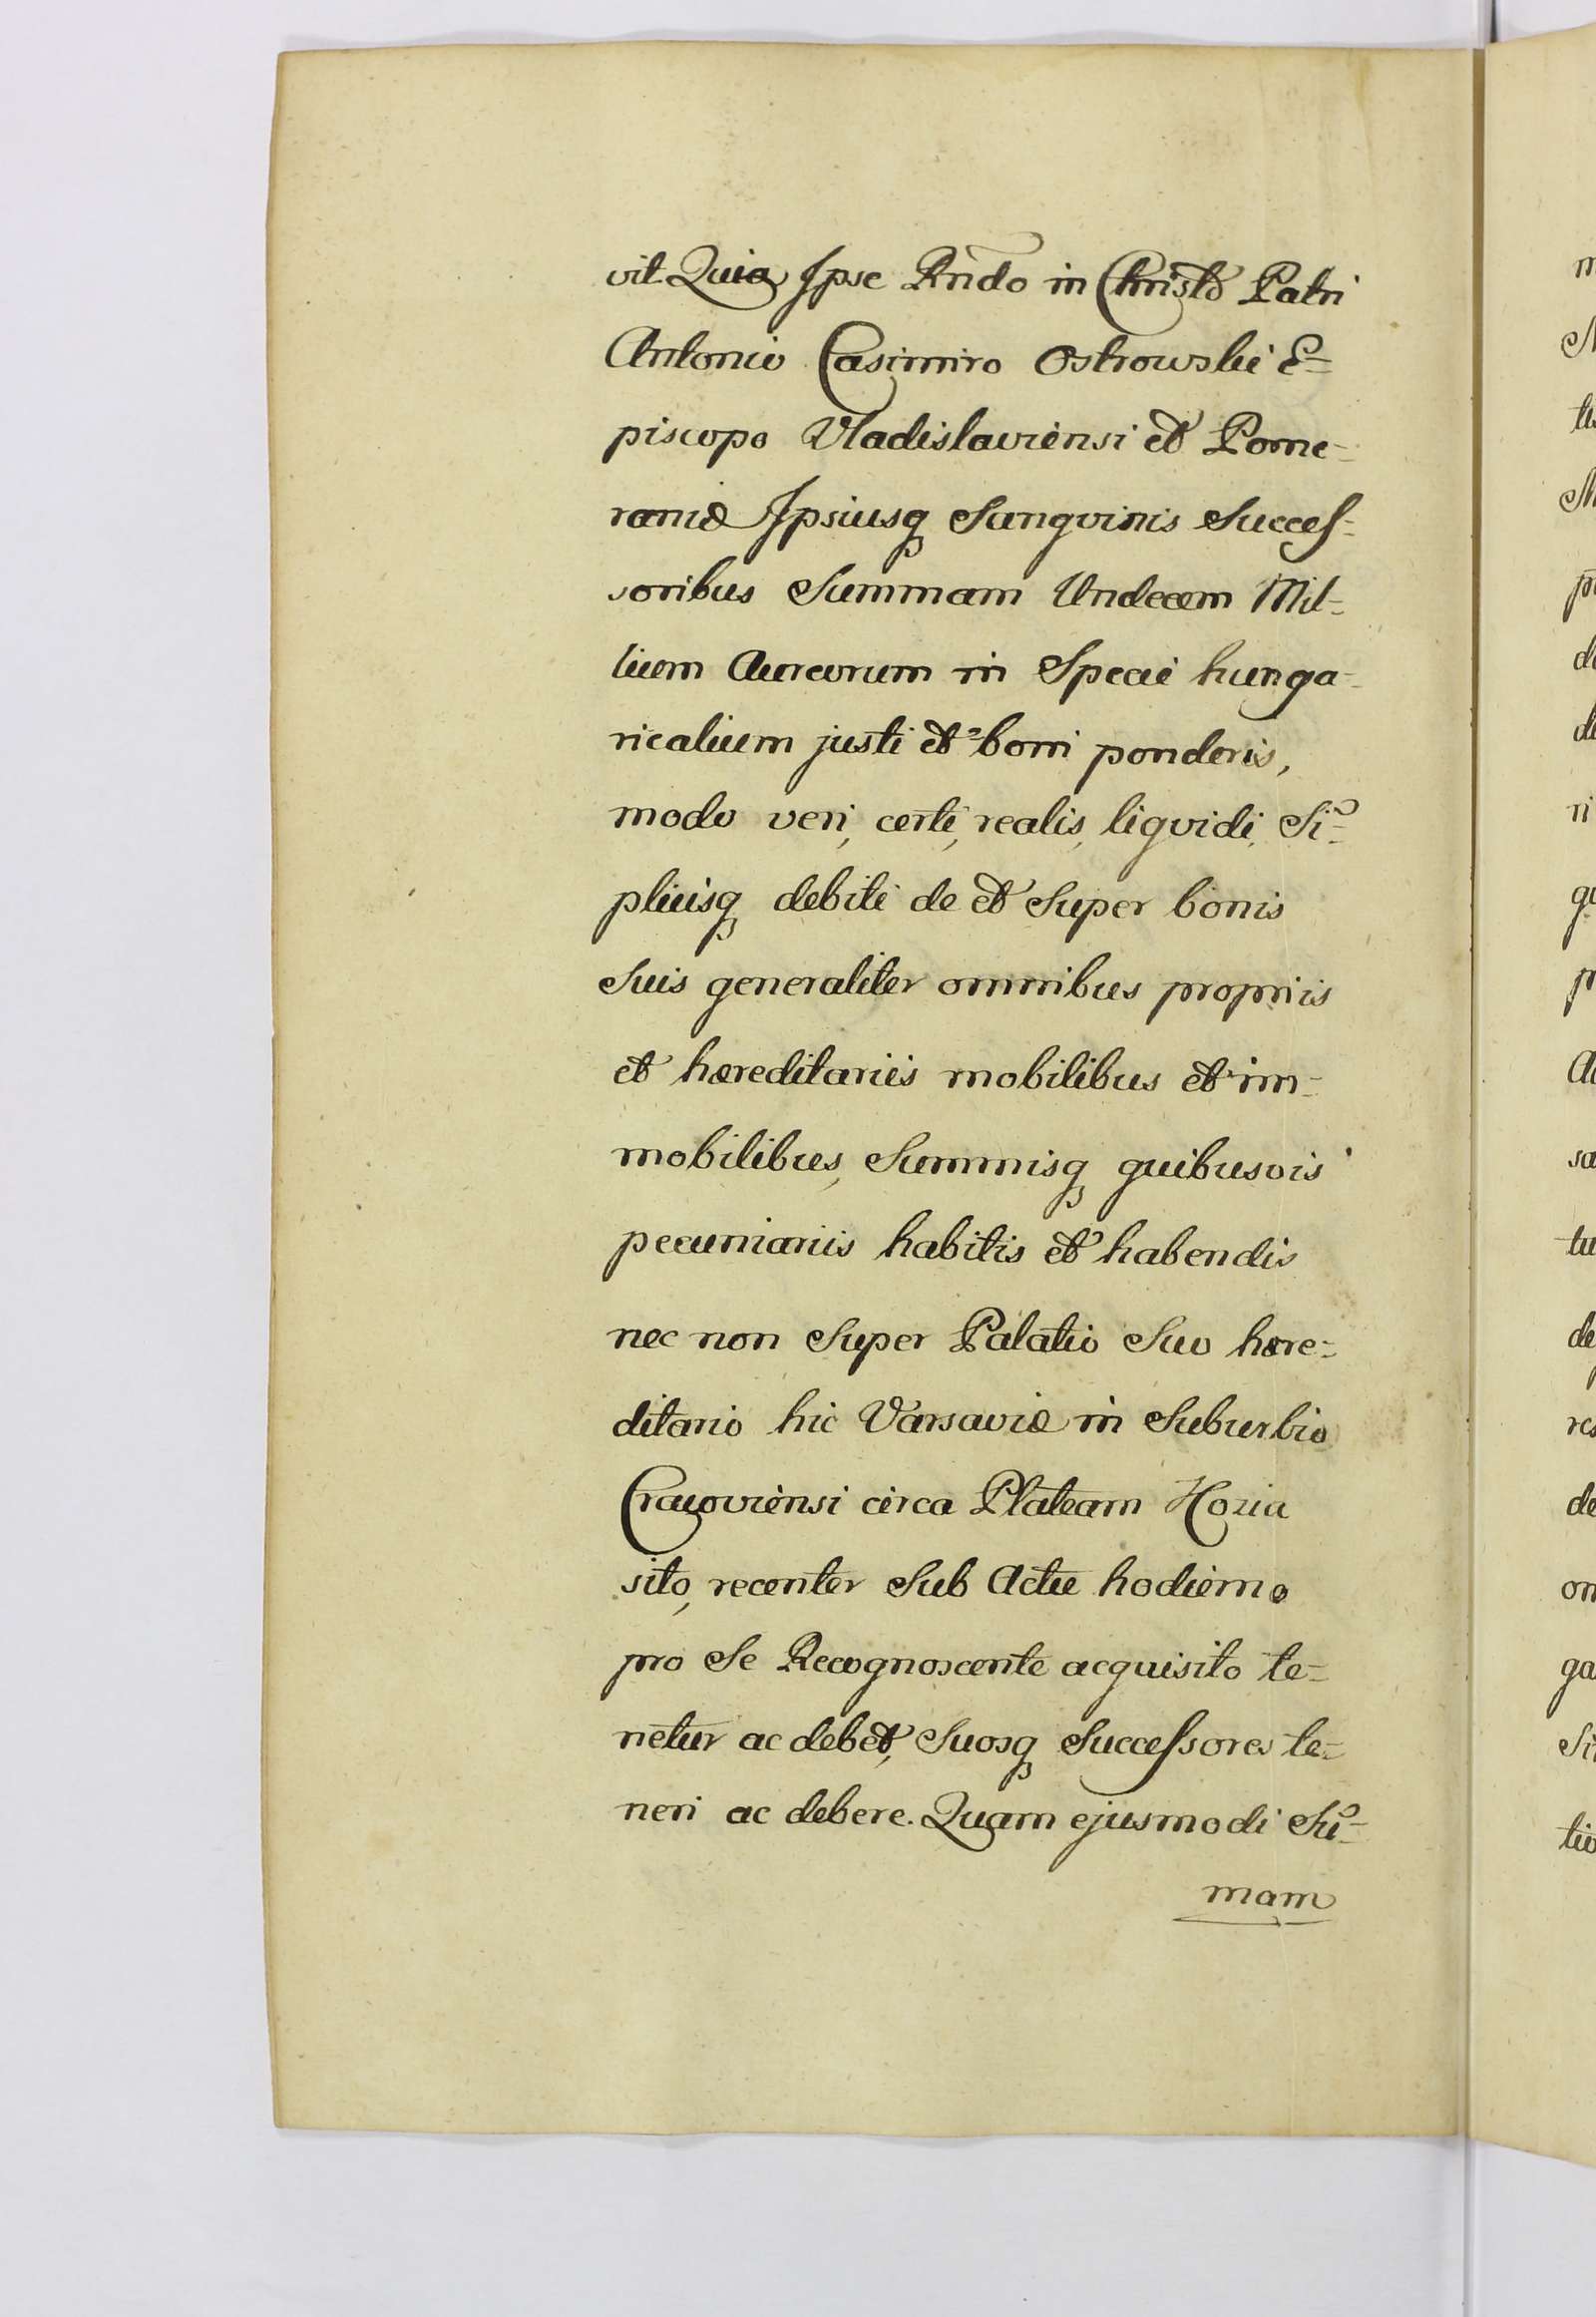 vit. Quia Ipse Rndo in Christo Patri
Antonio Casimiro Ostrowski E=
piscopo Vladislaviensi et Pome=
raniæ Ipsiusq Sangvinis Succes=
soribus Summam Undecem Mil=
lium Aureorum in Specie hunga=
ricalium justi et boni ponderis,
modo veri, certi, realis, liqvidi, Si=
pliusq debiti de et Super bonis
Suis generaliter omnibus propriis
et hæreditariis mobilibus et im=
mobilibus, Summisq quibusvis
pecuniariis habitis et habendis
nec non Super Palatio Suo hære=
ditario hic Varsaviæ in Suburbio
Cracoviensi circa Plateam Kozia
sito, recenter Sub Actu hodierno
pro Se Recognoscente acquisito te=
netur ac debet, Suosq Successores te=
neri ac debere. Quam ejusmodi Su=
mam